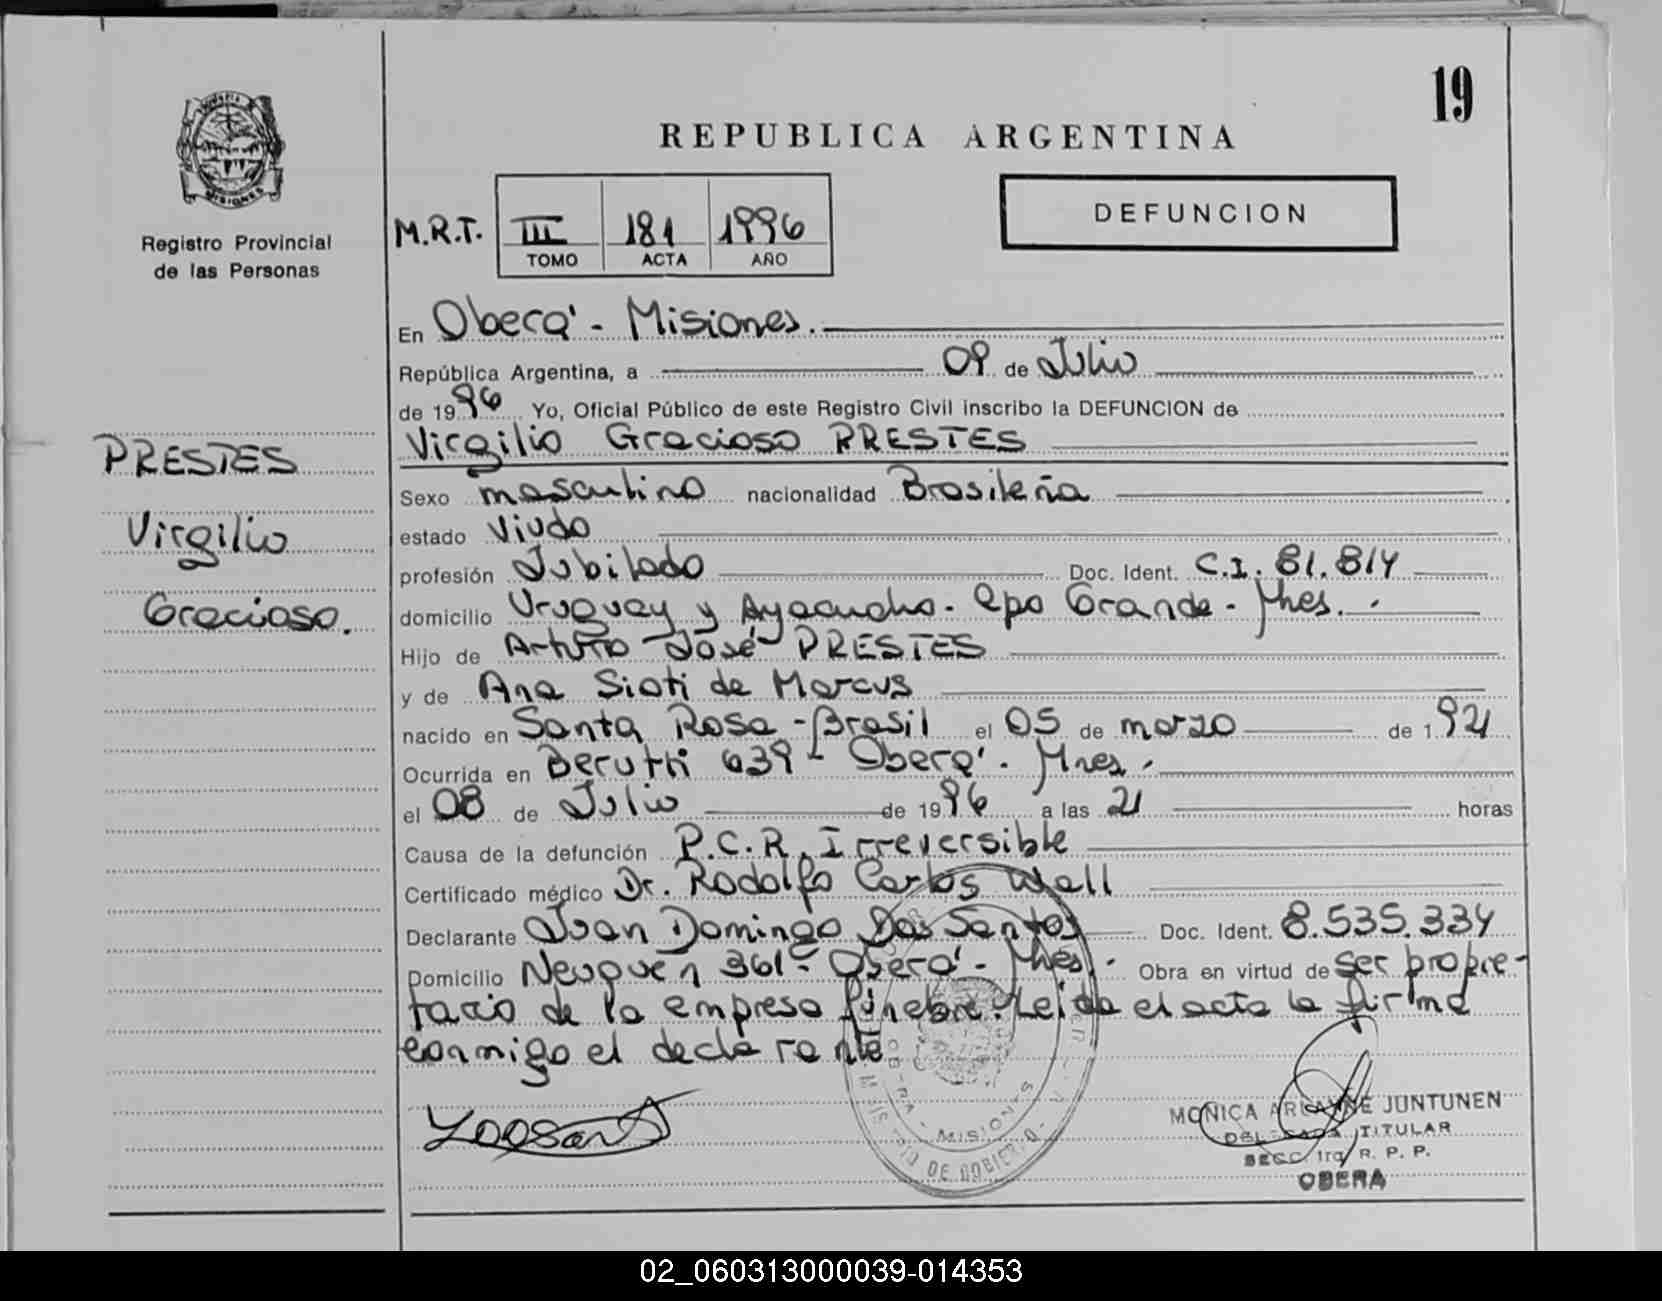 19
REPUBLICA ARGENTINA
DEFUNCION
M.R.T. III 181 1996
TOMO ACTA AÑO
MISIONES
Registro Provincial
de las Personas
PRESTES
Virgilio
Gracioso.
En Oberá - Misiones.
República Argentina, a 09 de Julio
de 1996 Yo, Oficial Público de este Registro Civil inscribo la DEFUNCION de
Virgilio Gracioso PRESTES
Sexo masculino nacionalidad Brasileña
estado Viudo
profesión Jubilado Doc. Ident. C.I. 81.814
domicilio Uruguay y Ayacucho - Cpo Grande - Mnes.
Hijo de Arturo José PRESTES
y de Ana Sioti de Marcus
nacido en Santa Rosa - Brasil el 05 de marzo de 1.921
Ocurrida en Berutti 639 - Oberá. Mnes.
el 08 de Julio de 1996 a las 21 horas
Causa de la defunción P.C.R. Irreversible
Certificado médico Dr. Rodolfo Carlos Wall
Declarante Juan Domingo Dos Santos Doc. Ident. 8.535.334
Domicilio Neuquén 361 - Oberá - Mnes. Obra en virtud de ser propie-
tario de la empresa fúnebre. Leida el acta la firma
conmigo el declarante
OBERA - MISIONES
MINISTERIO DE GOBIERNO
MONICA ARIANNE JUNTUNEN
DELEGADA TITULAR
SECC. 1ra. R. P. P.
OBERA
02_060313000039-014353